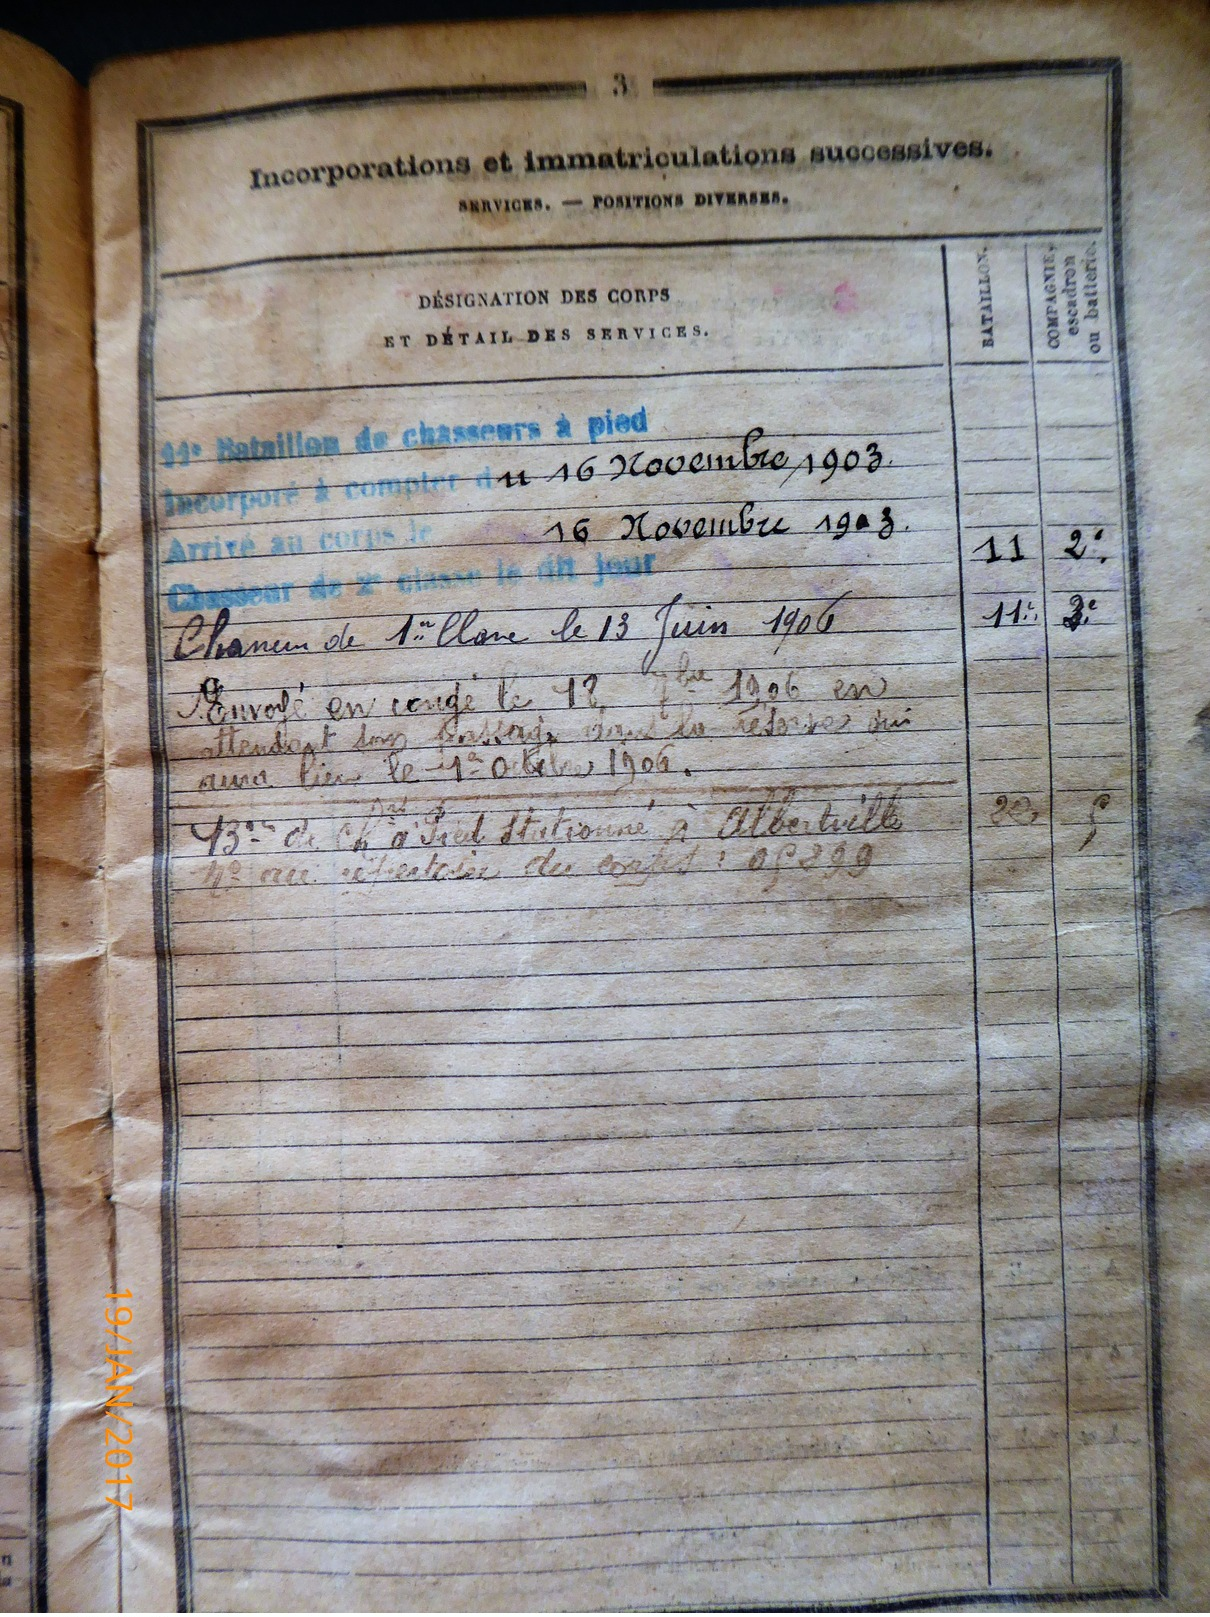 3
Incorporations et immatriculations successives.
SERVICES. — POSITIONS DIVERSES.
DÉSIGNATION DES CORPS
ET DÉTAIL DES SERVICES.
BATAILLON.
COMPAGNIE,
escadron
ou batterie.
11e Bataillon de chasseurs à pied
Incorporé à compter du 16 Novembre 1903.
Arrivé au corps le 16 Novembre 1903.
11 2e.
Chasseur de 2e classe le dit jour
Chasseur de 1re Classe le 13 Juin 1906
11e 3e
Envoyé en congé le 18 7bre 1906 en
attendant son passage dans la réserve qui
aura lieu le 1er Octobre 1906.
13e de Ch à Pied Stationné à Albertville
No au répertoire du corps : 05299
19/JAN/2017